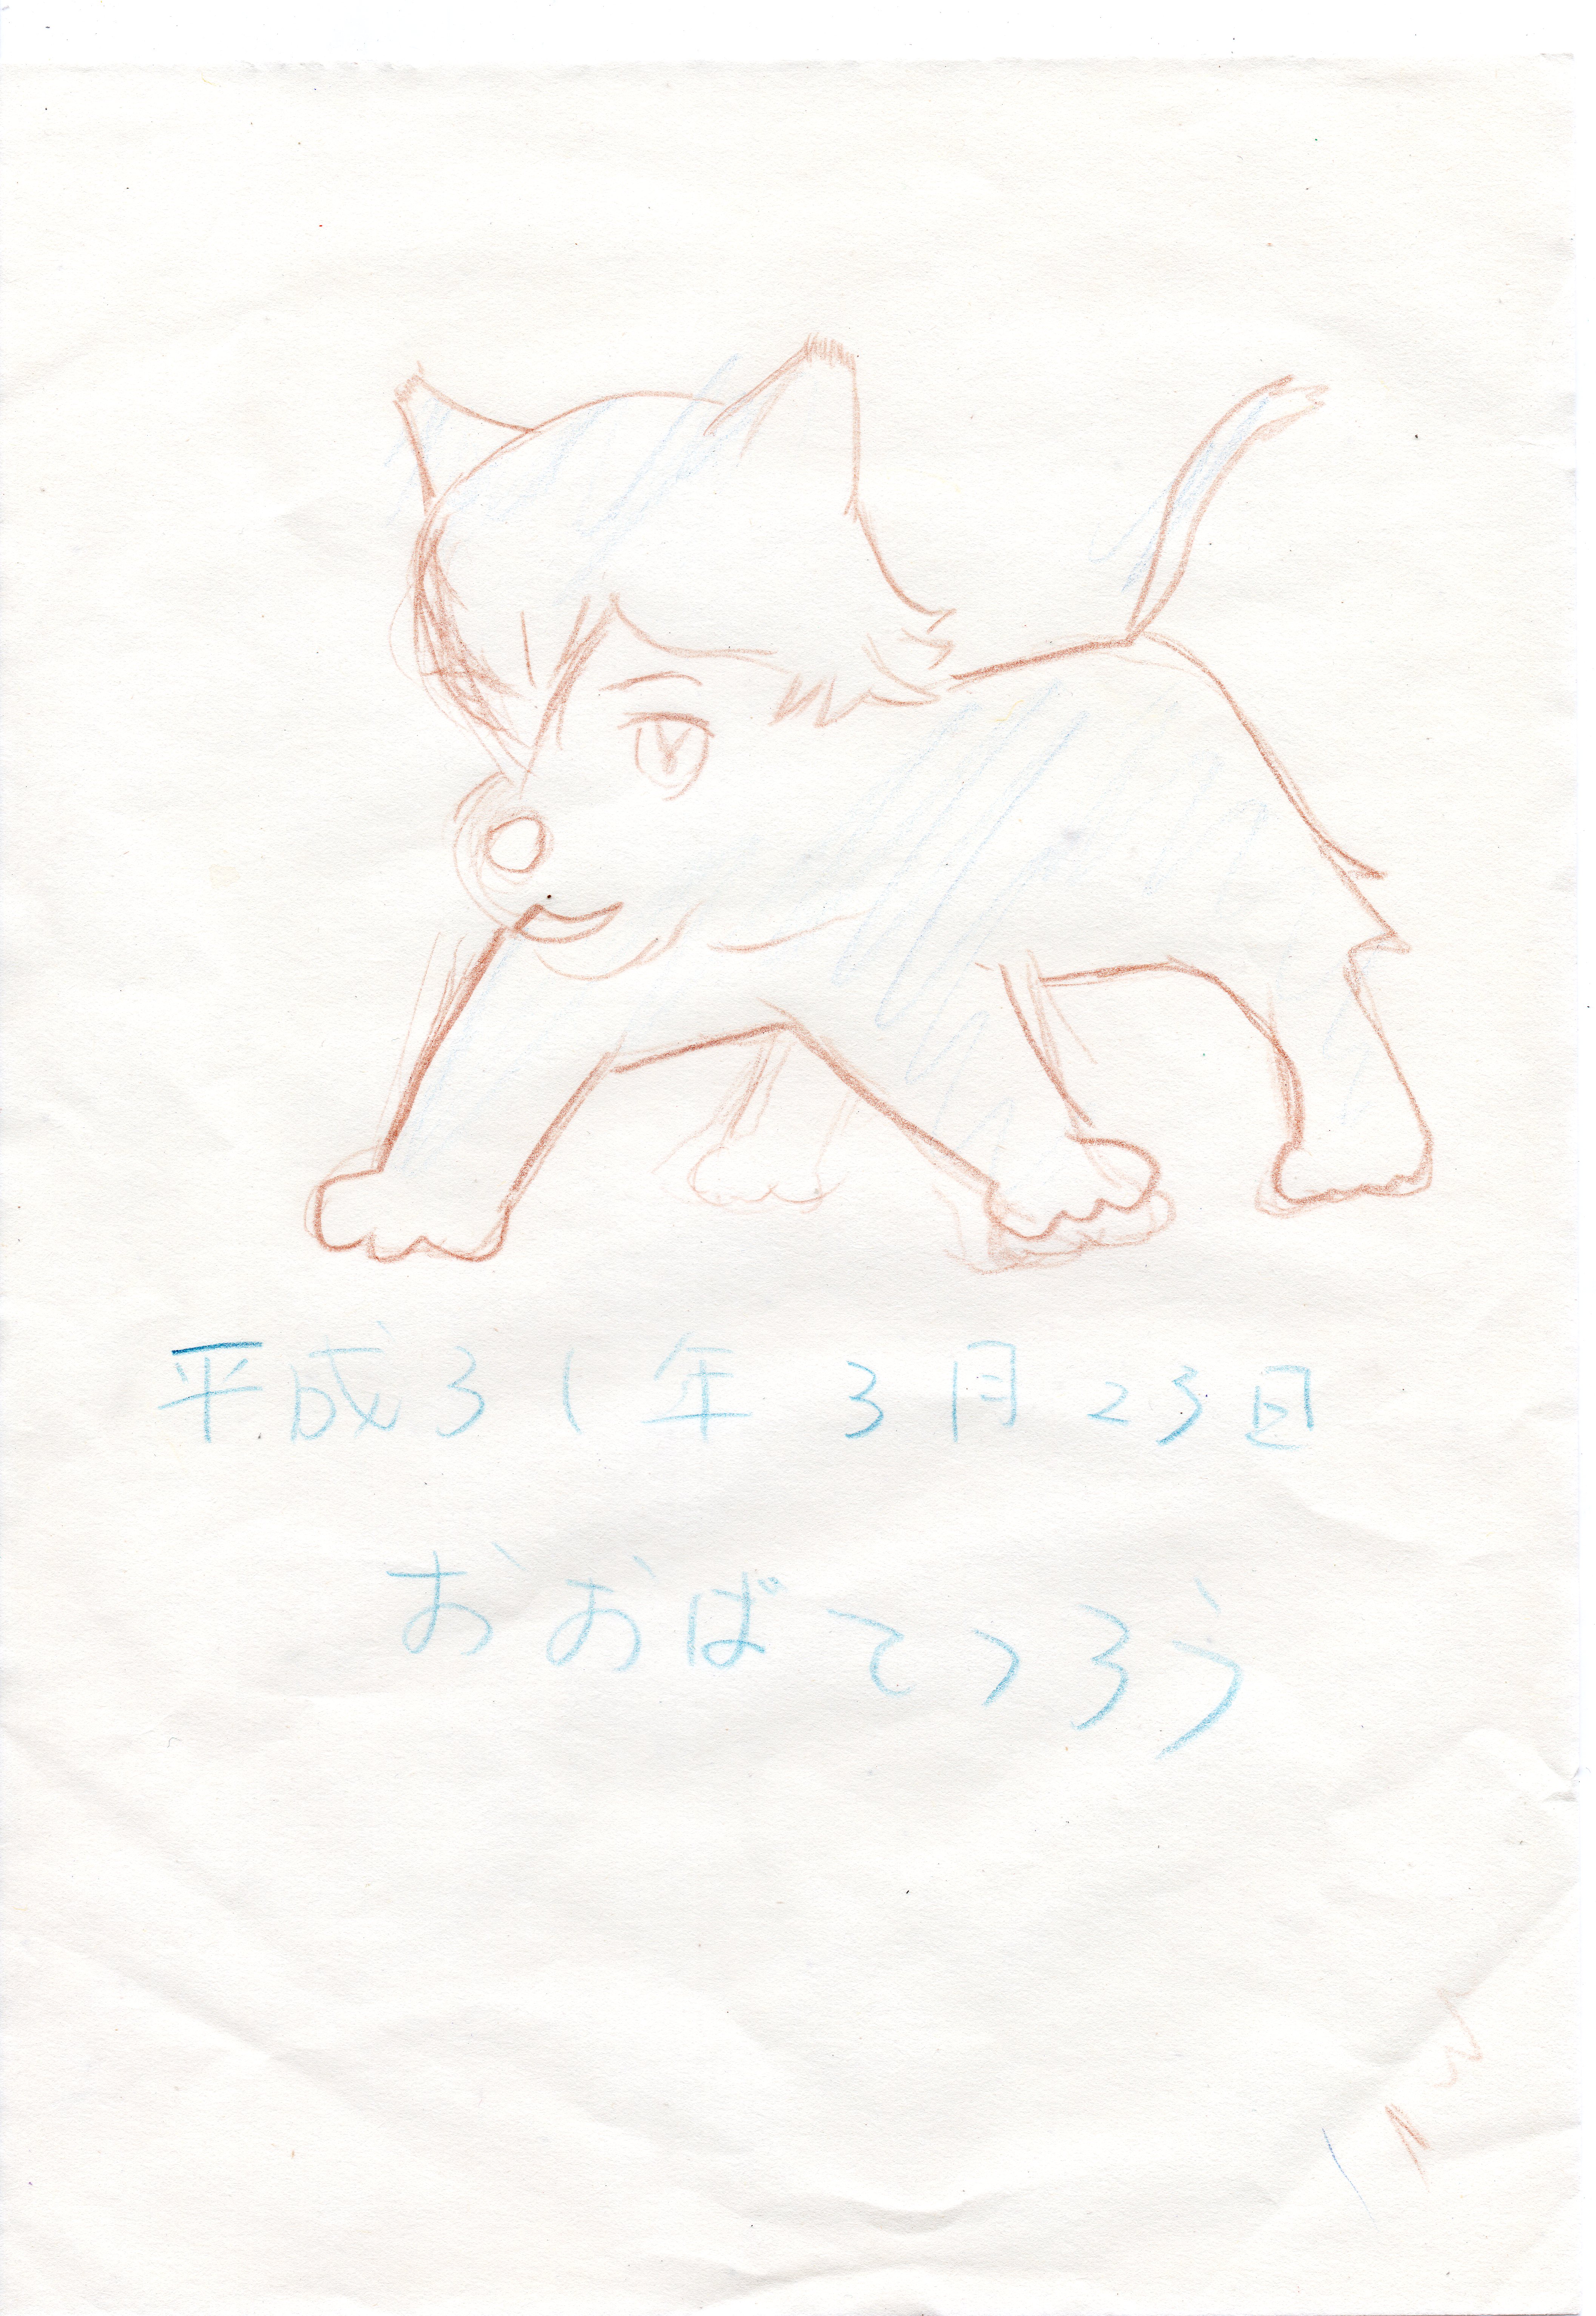 平成31年 3月23日
おおばてつろう